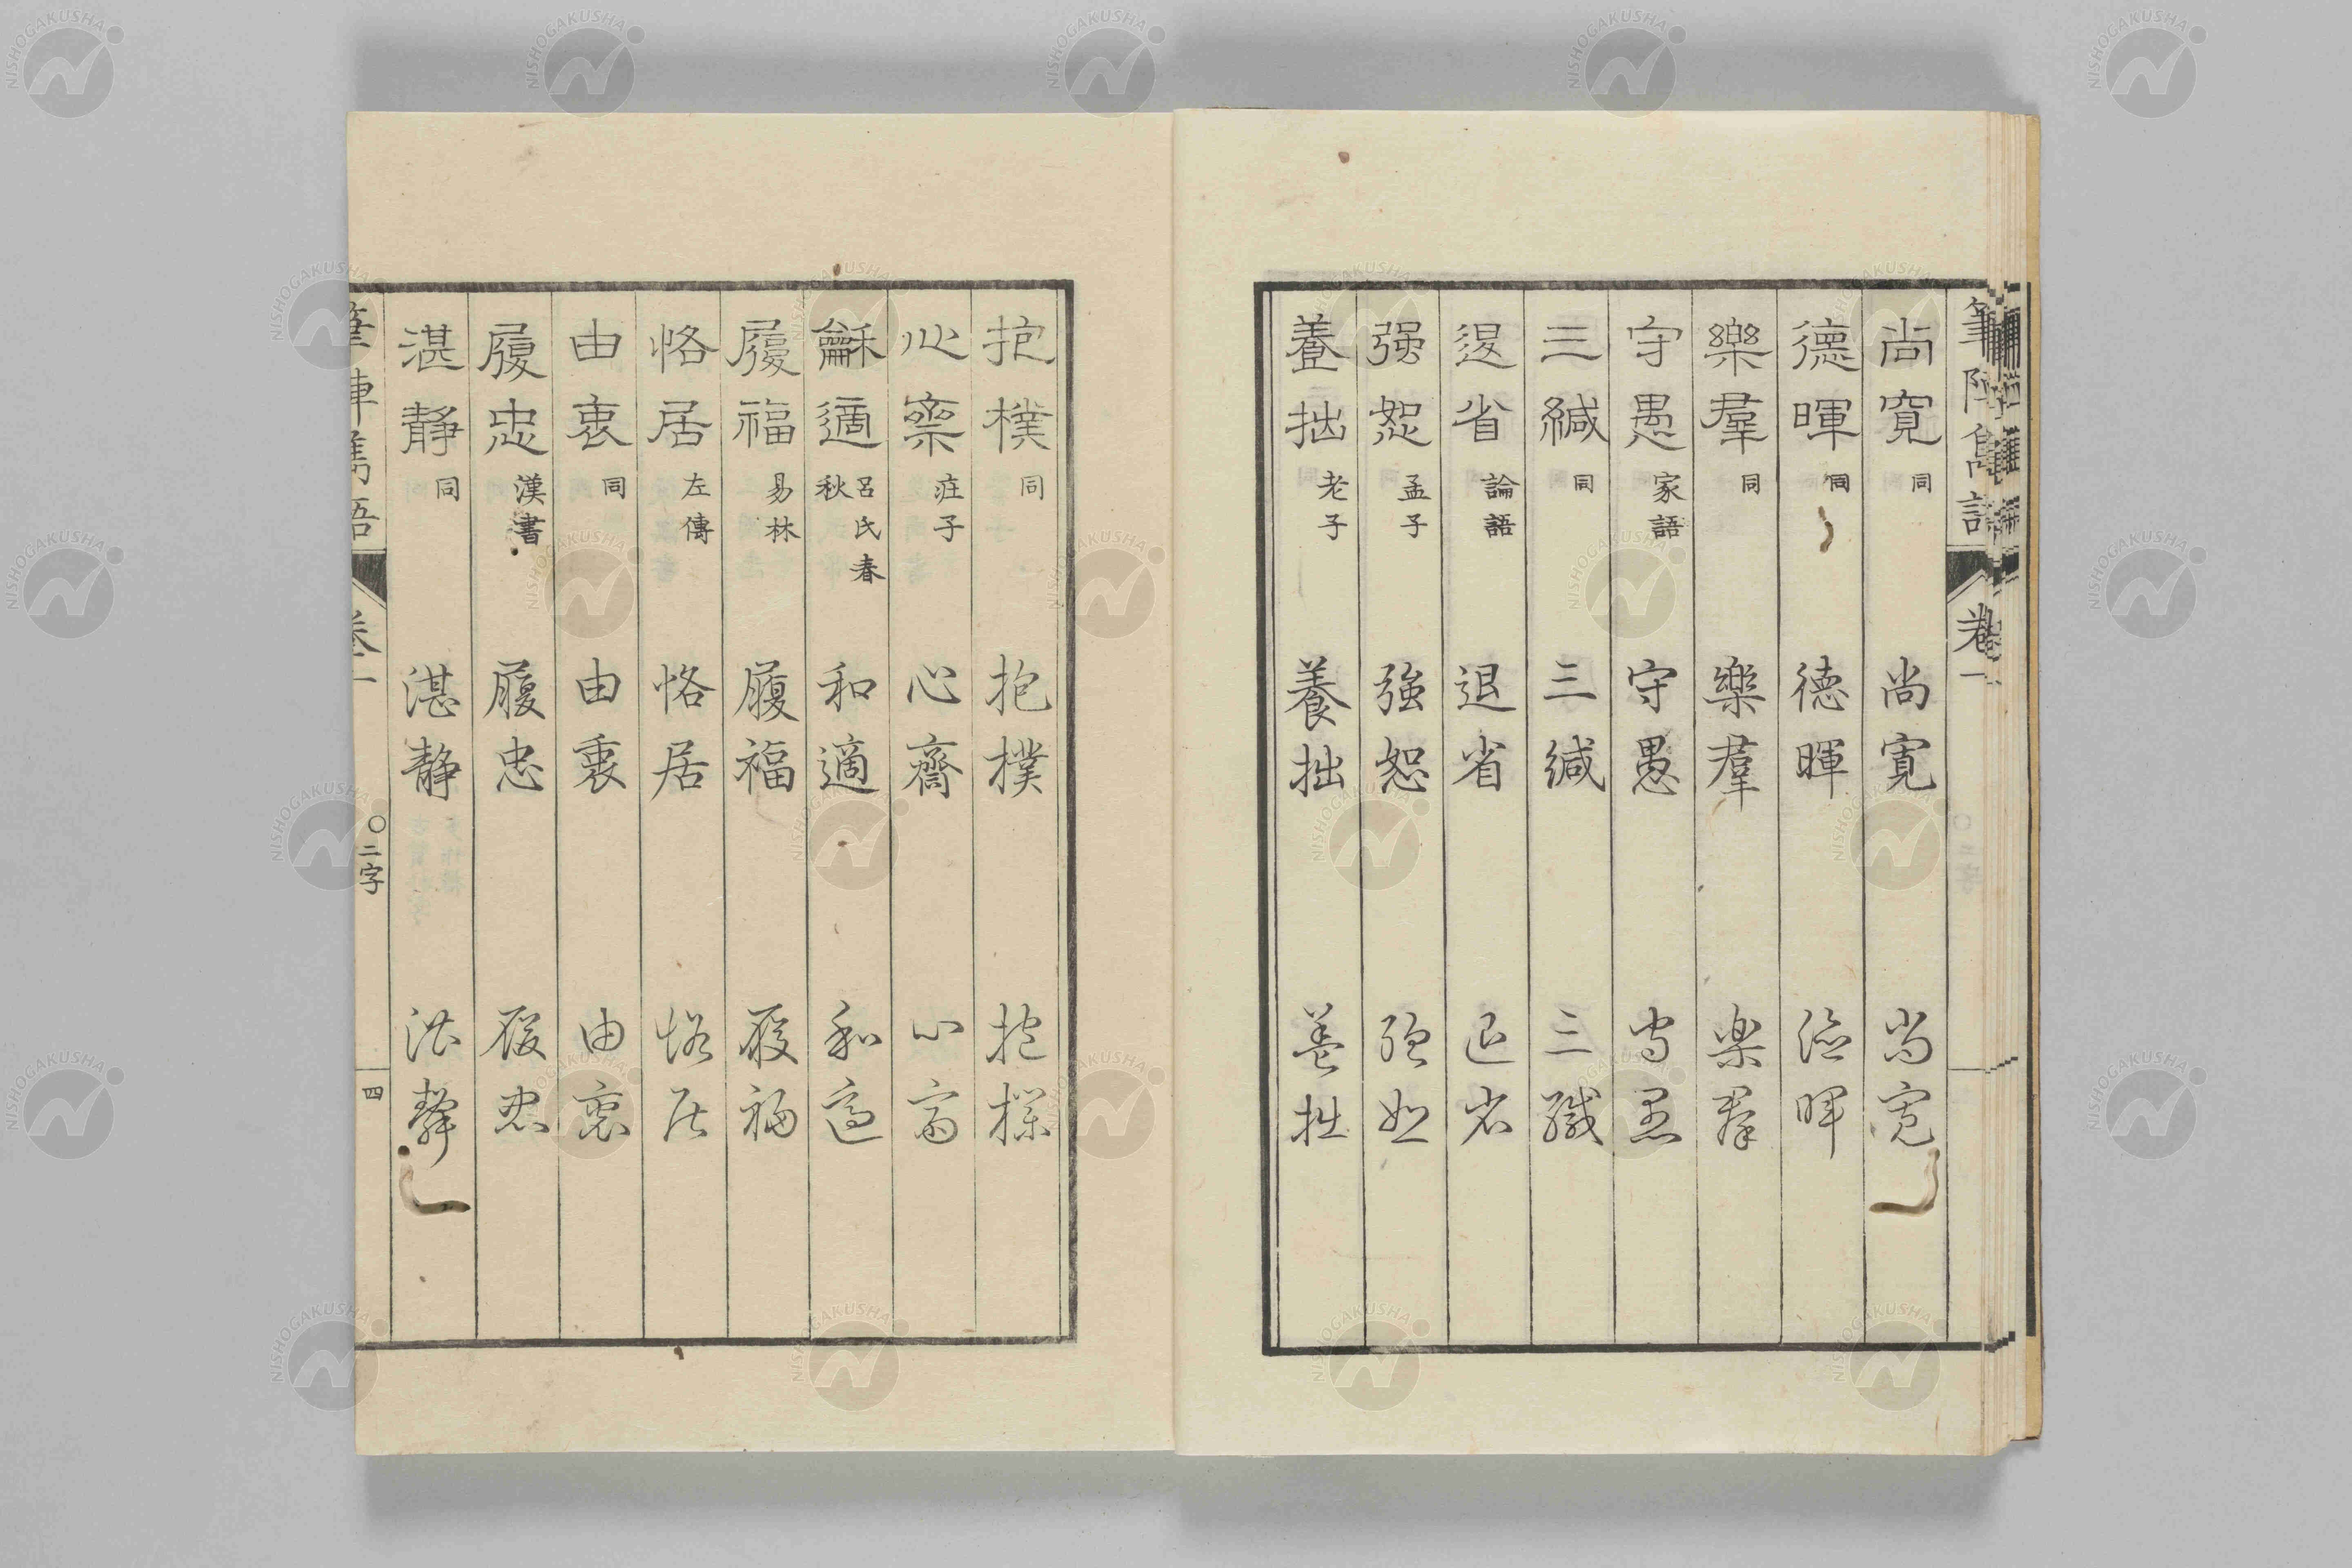 筆陣雋語 卷一
尚寬 同 尚寬 尚寬
德暉 同 德暉 德暉
樂羣 同 樂羣 樂羣
守愚 家語 守愚 守愚
三緘 同 三緘 三緘
退省 論語 退省 退省
强恕 孟子 強恕 強恕
養拙 老子 養拙 養拙
抱樸 同 抱樸 抱樸
心齋 莊子 心齋 心齋
龢適 呂氏春秋 和適 和適
履福 易林 履福 履福
恪居 左傳 恪居 恪居
由衷 同 由衷 由衷
履忠 漢書 履忠 履忠
湛靜 同 湛靜 湛靜
筆陣雋語 卷一 〇二字 四
NISHOGAKUSHA